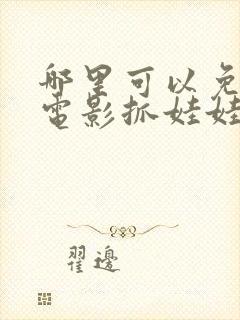 哪里可以免
电影抓娃娃
翟边